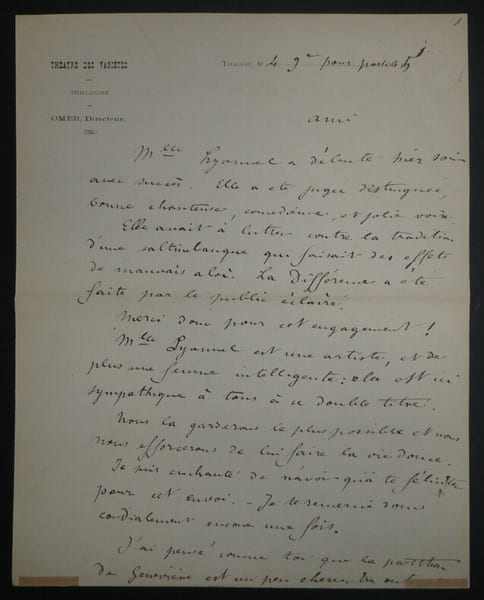 THÉATRE DES VARIÉTÉS
TOULOUSE
OMER, Directeur.
Toulouse, le 4 9re pour
ami
Melle Lyonnel a débuté hier soir
avec succès. Elle a été jugée distinguée,
bonne chanteuse, comédienne, et jolie voix.
Elle avait à lutter contre la tradition
d'une saltimbanque qui faisait des effets
de mauvais aloi. La Différence a été
faite par le public éclairé.
Merci donc pour cet engagement !
Mlle Lyonnel est une artiste, et de
plus une femme intelligente : elle est ici
sympathique à tous à ce double titre.
Nous la garderons le plus possible et nous
nous efforcerons de lui faire la vie douce.
Je suis enchanté de n'avoir qu'à te féliciter
pour cet envoi. - Je te remercie donc
cordialement encore une fois.
J'ai pensé comme toi que la partition
De Geneviève est un peu